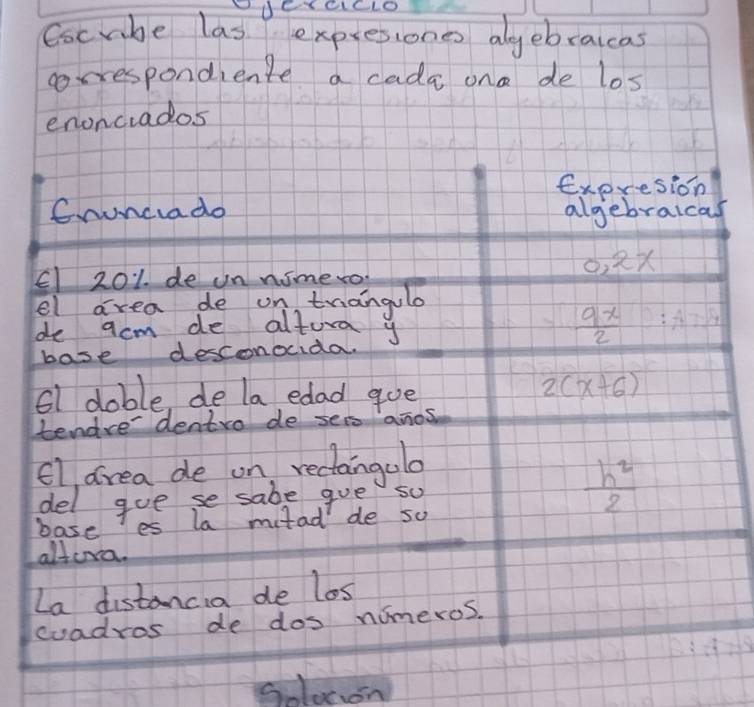 Escribe las expresiones algebraicas
correspondiente a cada una de los
enunciados
Enunciado
Expresión
algebraicas
El 20% de un número.
0,2x
el área de un triángulo
de 9cm de altura y
base desconocida.
9x/2
El doble de la edad que
tendré dentro de seis años
2(x+6)
El área de un rectángulo
del que se sabe que su
base es la mitad de su
altura.
h²/2
La distancia de los
cuadros de dos números.
Solución